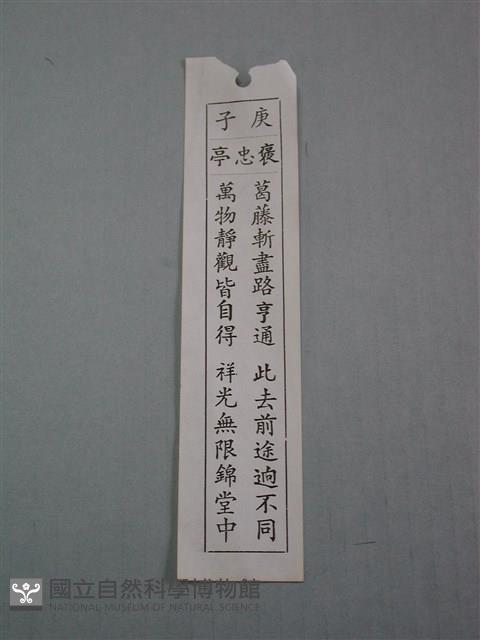 庚子
褒忠亭
葛藤斬盡路亨通 此去前途逈不同
萬物靜觀皆自得 祥光無限錦堂中
國立自然科學博物館
NATIONAL MUSEUM OF NATURAL SCIENCE